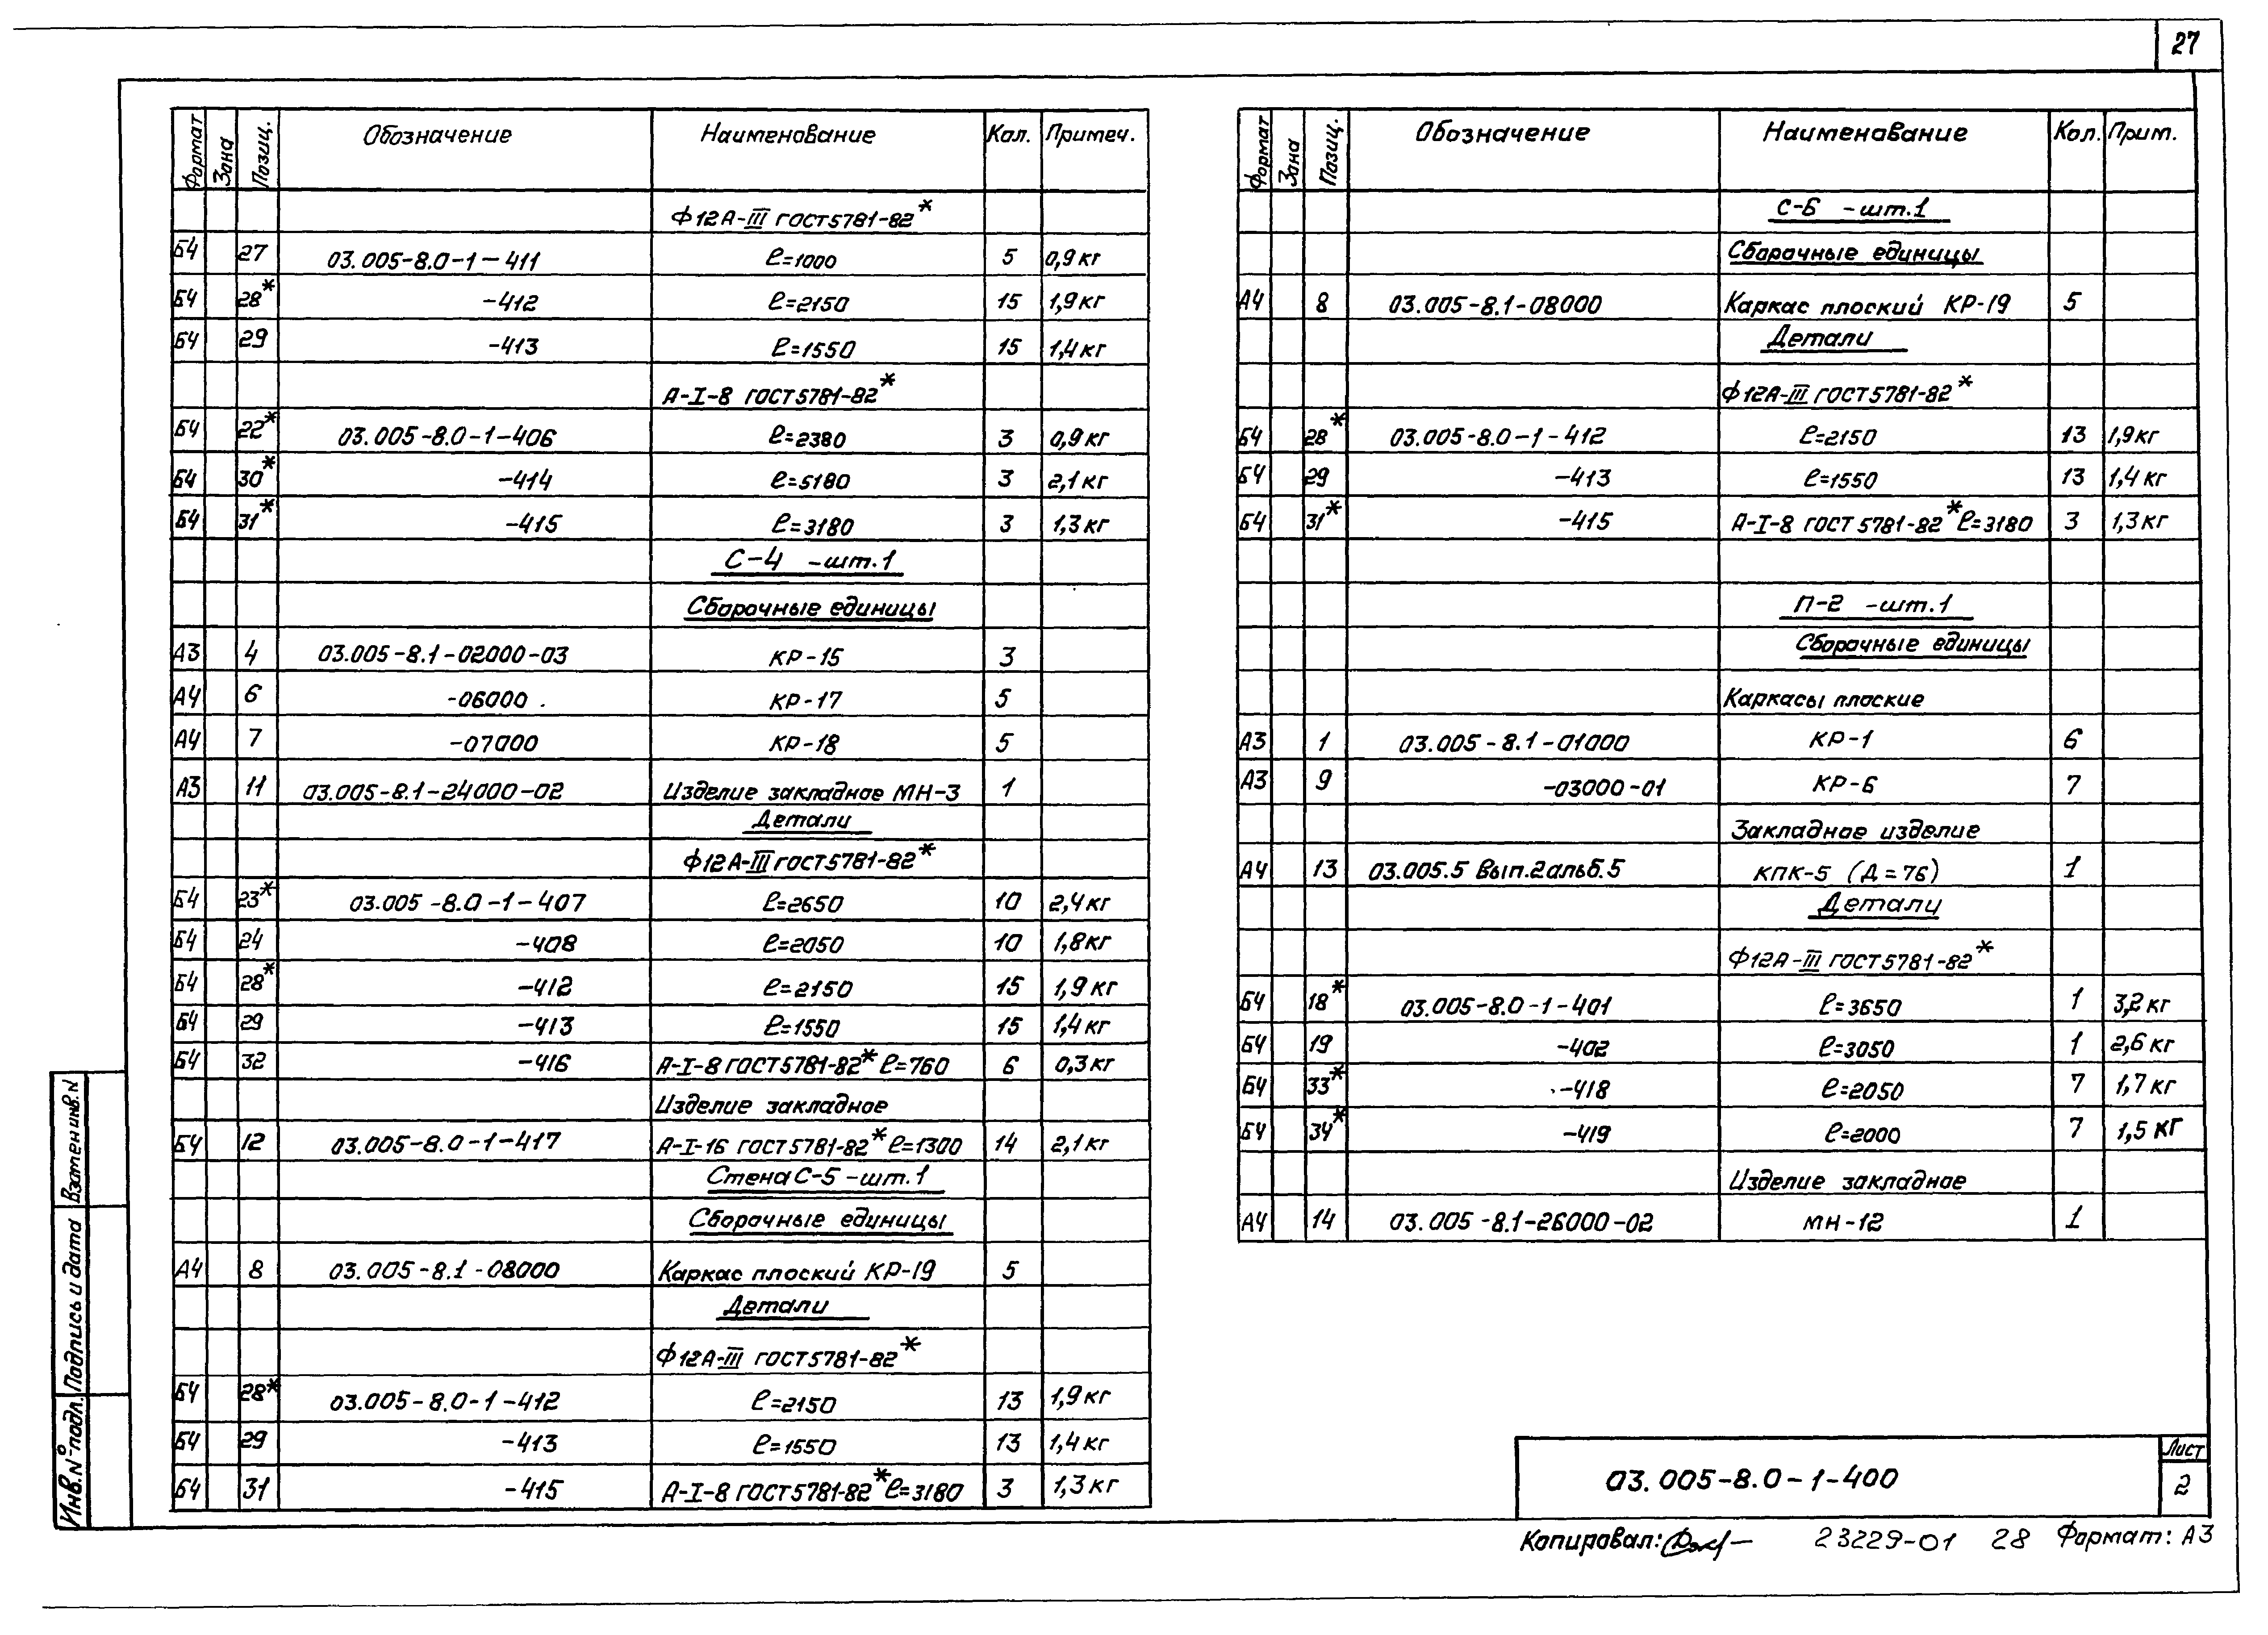 27
Формат Зона Позиц. Обозначение Наименование Кол. Примеч.
Ф12А-III ГОСТ5781-82*
Б4 27 03.005-8.0-1-411 ℓ=1000 5 0,9кг
Б4 28* -412 ℓ=2150 15 1,9кг
Б4 29 -413 ℓ=1550 15 1,4кг
А-I-8 ГОСТ5781-82*
Б4 22* 03.005-8.0-1-406 ℓ=2380 3 0,9кг
Б4 30* -414 ℓ=5180 3 2,1кг
Б4 31* -415 ℓ=3180 3 1,3кг
С-4 -шт.1
Сборочные единицы
А3 4 03.005-8.1-02000-03 КР-15 3
А4 6 -06000 КР-17 5
А4 7 -07000 КР-18 5
А3 11 03.005-8.1-24000-02 Изделие закладное МН-3 1
Детали
Ф12А-III ГОСТ5781-82*
Б4 23* 03.005-8.0-1-407 ℓ=2650 10 2,4кг
Б4 24 -408 ℓ=2050 10 1,8кг
Б4 28* -412 ℓ=2150 15 1,9кг
Б4 29 -413 ℓ=1550 15 1,4кг
Б4 32 -416 А-I-8 ГОСТ5781-82* ℓ=760 6 0,3кг
Изделие закладное
Б4 12 03.005-8.0-1-417 А-I-16 ГОСТ5781-82* ℓ=1300 14 2,1кг
Стена С-5 -шт.1
Сборочные единицы
А4 8 03.005-8.1-08000 Каркас плоский КР-19 5
Детали
Ф12А-III ГОСТ5781-82*
Б4 28* 03.005-8.0-1-412 ℓ=2150 13 1,9кг
Б4 29 -413 ℓ=1550 13 1,4кг
Б4 31 -415 А-I-8 ГОСТ5781-82* ℓ=3180 3 1,3кг
Формат Зона Позиц. Обозначение Наименование Кол. Прим.
С-6 -шт.1
Сборочные единицы
А4 8 03.005-8.1-08000 Каркас плоский КР-19 5
Детали
Ф12А-III ГОСТ5781-82*
Б4 28* 03.005-8.0-1-412 ℓ=2150 13 1,9кг
Б4 29 -413 ℓ=1550 13 1,4кг
Б4 31* -415 А-I-8 ГОСТ5781-82* ℓ=3180 3 1,3кг
П-2 -шт.1
Сборочные единицы
Каркасы плоские
А3 1 03.005-8.1-01000 КР-1 6
А3 9 -03000-01 КР-6 7
Закладное изделие
А4 13 03.005.5 Вып.2альб.5 КПК-5 (Д=76) 1
Детали
Ф12А-III ГОСТ5781-82*
Б4 18* 03.005-8.0-1-401 ℓ=3650 1 3,2кг
Б4 19 -402 ℓ=3050 1 2,6кг
Б4 33* -418 ℓ=2050 7 1,7кг
Б4 34* -419 ℓ=2000 7 1,5кг
Изделие закладное
А4 14 03.005-8.1-26000-02 МН-12 1
Взамен инв.N
Подпись и дата
Инв.Nº подл.
03.005-8.0-1-400
Лист
2
Копировал: 23229-01 28 Формат: А3